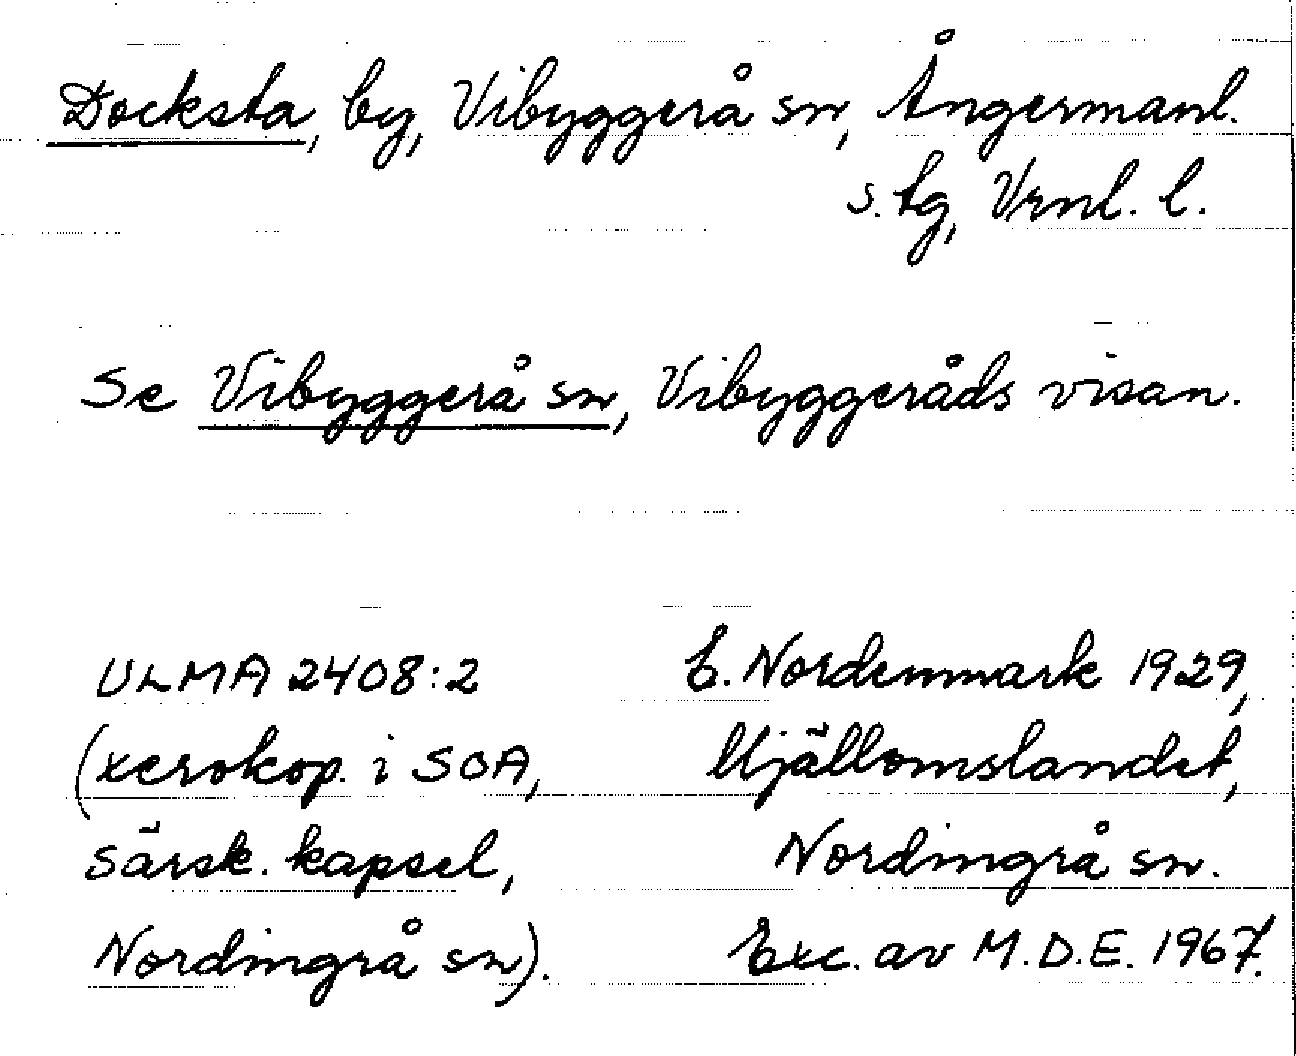 Docksta, by, Vibyggerå sn, Ångermanl.
s. tg, Vrnl. l.
Se Vibyggerå sn, Vibyggeråds visan.
ULMA 2408:2
(xerokop. i SOA,
särsk. kapsel,
Nordingrå sn).
E. Nordenmark 1929,
Mjällomslandet,
Nordingrå sn.
Exc. av M.D.E. 1967.